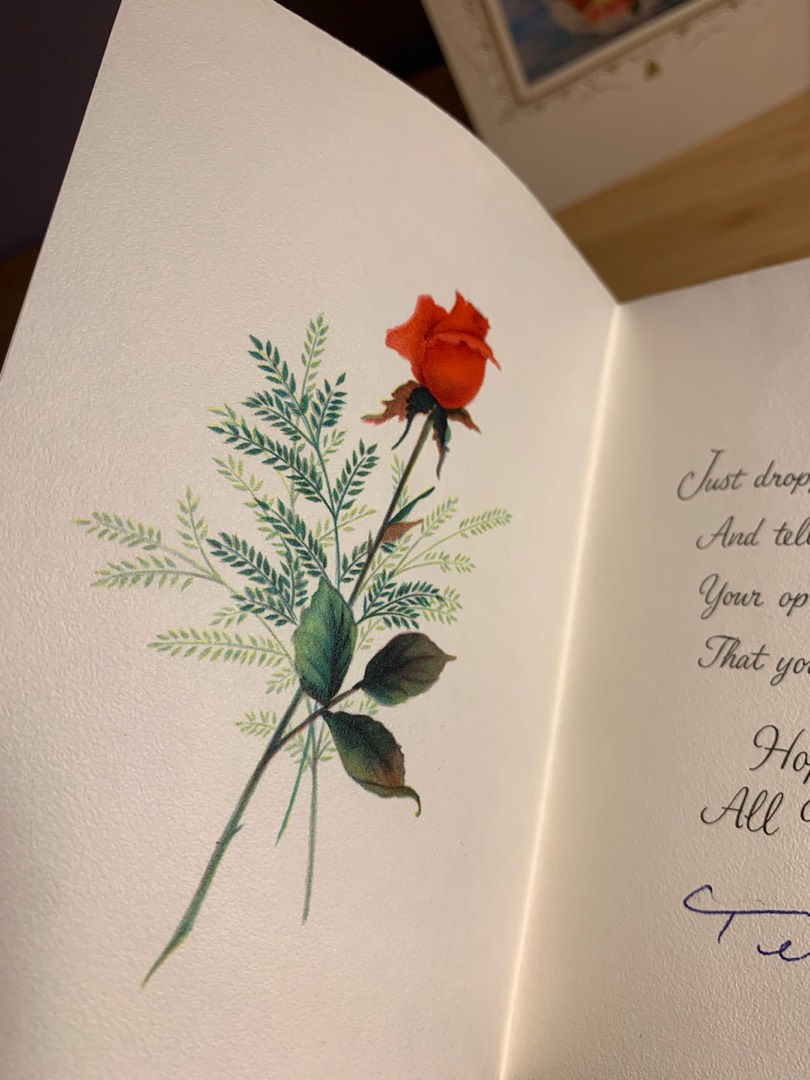 Just drop
And tell
Your op
That you
Hop
All
Te